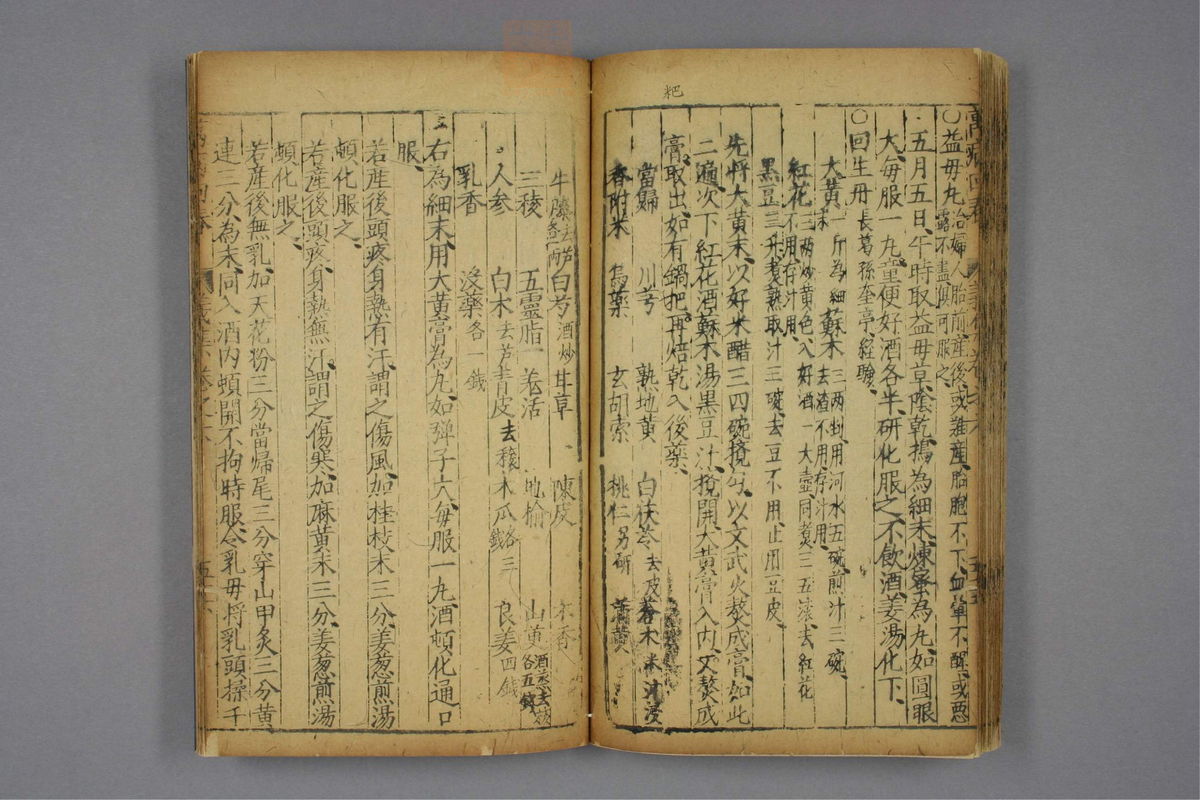 粑
萬病回春
○益母丸 治婦人胎前產後或難產胎胞不下血暈不醒或惡
露不盡俱可服之
五月五日午時取益母草陰乾搗為細末煉蜜為丸如圓眼
大每服一丸童便好酒各半研化服之不飲酒姜湯化下
○回生丹 長葛孫奎亭經驗
大黃末一斤為細 蘇木三兩剉用河水五碗煎汁三碗
去渣不用存汁用
紅花三兩炒黃色入好酒一大壺同煮三五滾去紅花
不用存汁用
黑豆三升煮熟取汁三碗去豆不用止用豆皮
先將大黃末以好米醋三四碗攪勻以文武火熬成膏如此
二遍次下紅花酒蘇木湯黑豆汁攪開大黃膏入內又熬成
膏取出如有鍋把再焙乾入後藥
當歸 川芎 熟地黃 白茯苓去皮 蒼木米汁浸
香附米 烏藥 玄胡索 桃仁另研 蒲黃
牛膝去芦各一兩 白芍酒炒 甘草 陳皮 木香
三稜 五靈脂 羌活 地榆 山萸酒蒸去核各五錢
人參 白木去芦 青皮去穰 木瓜各三錢 良姜四錢
乳香 沒藥各一錢
右為細末用大黃膏為丸如彈子大每服一丸酒頓化通口
服
若產後頭疼身熱有汗謂之傷風加桂枝末三分姜葱煎湯
頓化服之
若產後頭疼身熱無汗謂之傷寒加麻黃末三分姜葱煎湯
頓化服之
若產後無乳加天花粉三分當歸尾三分穿山甲炙三分黃
連三分為末同入酒內頓開不拘時服令乳母將乳頭揉千